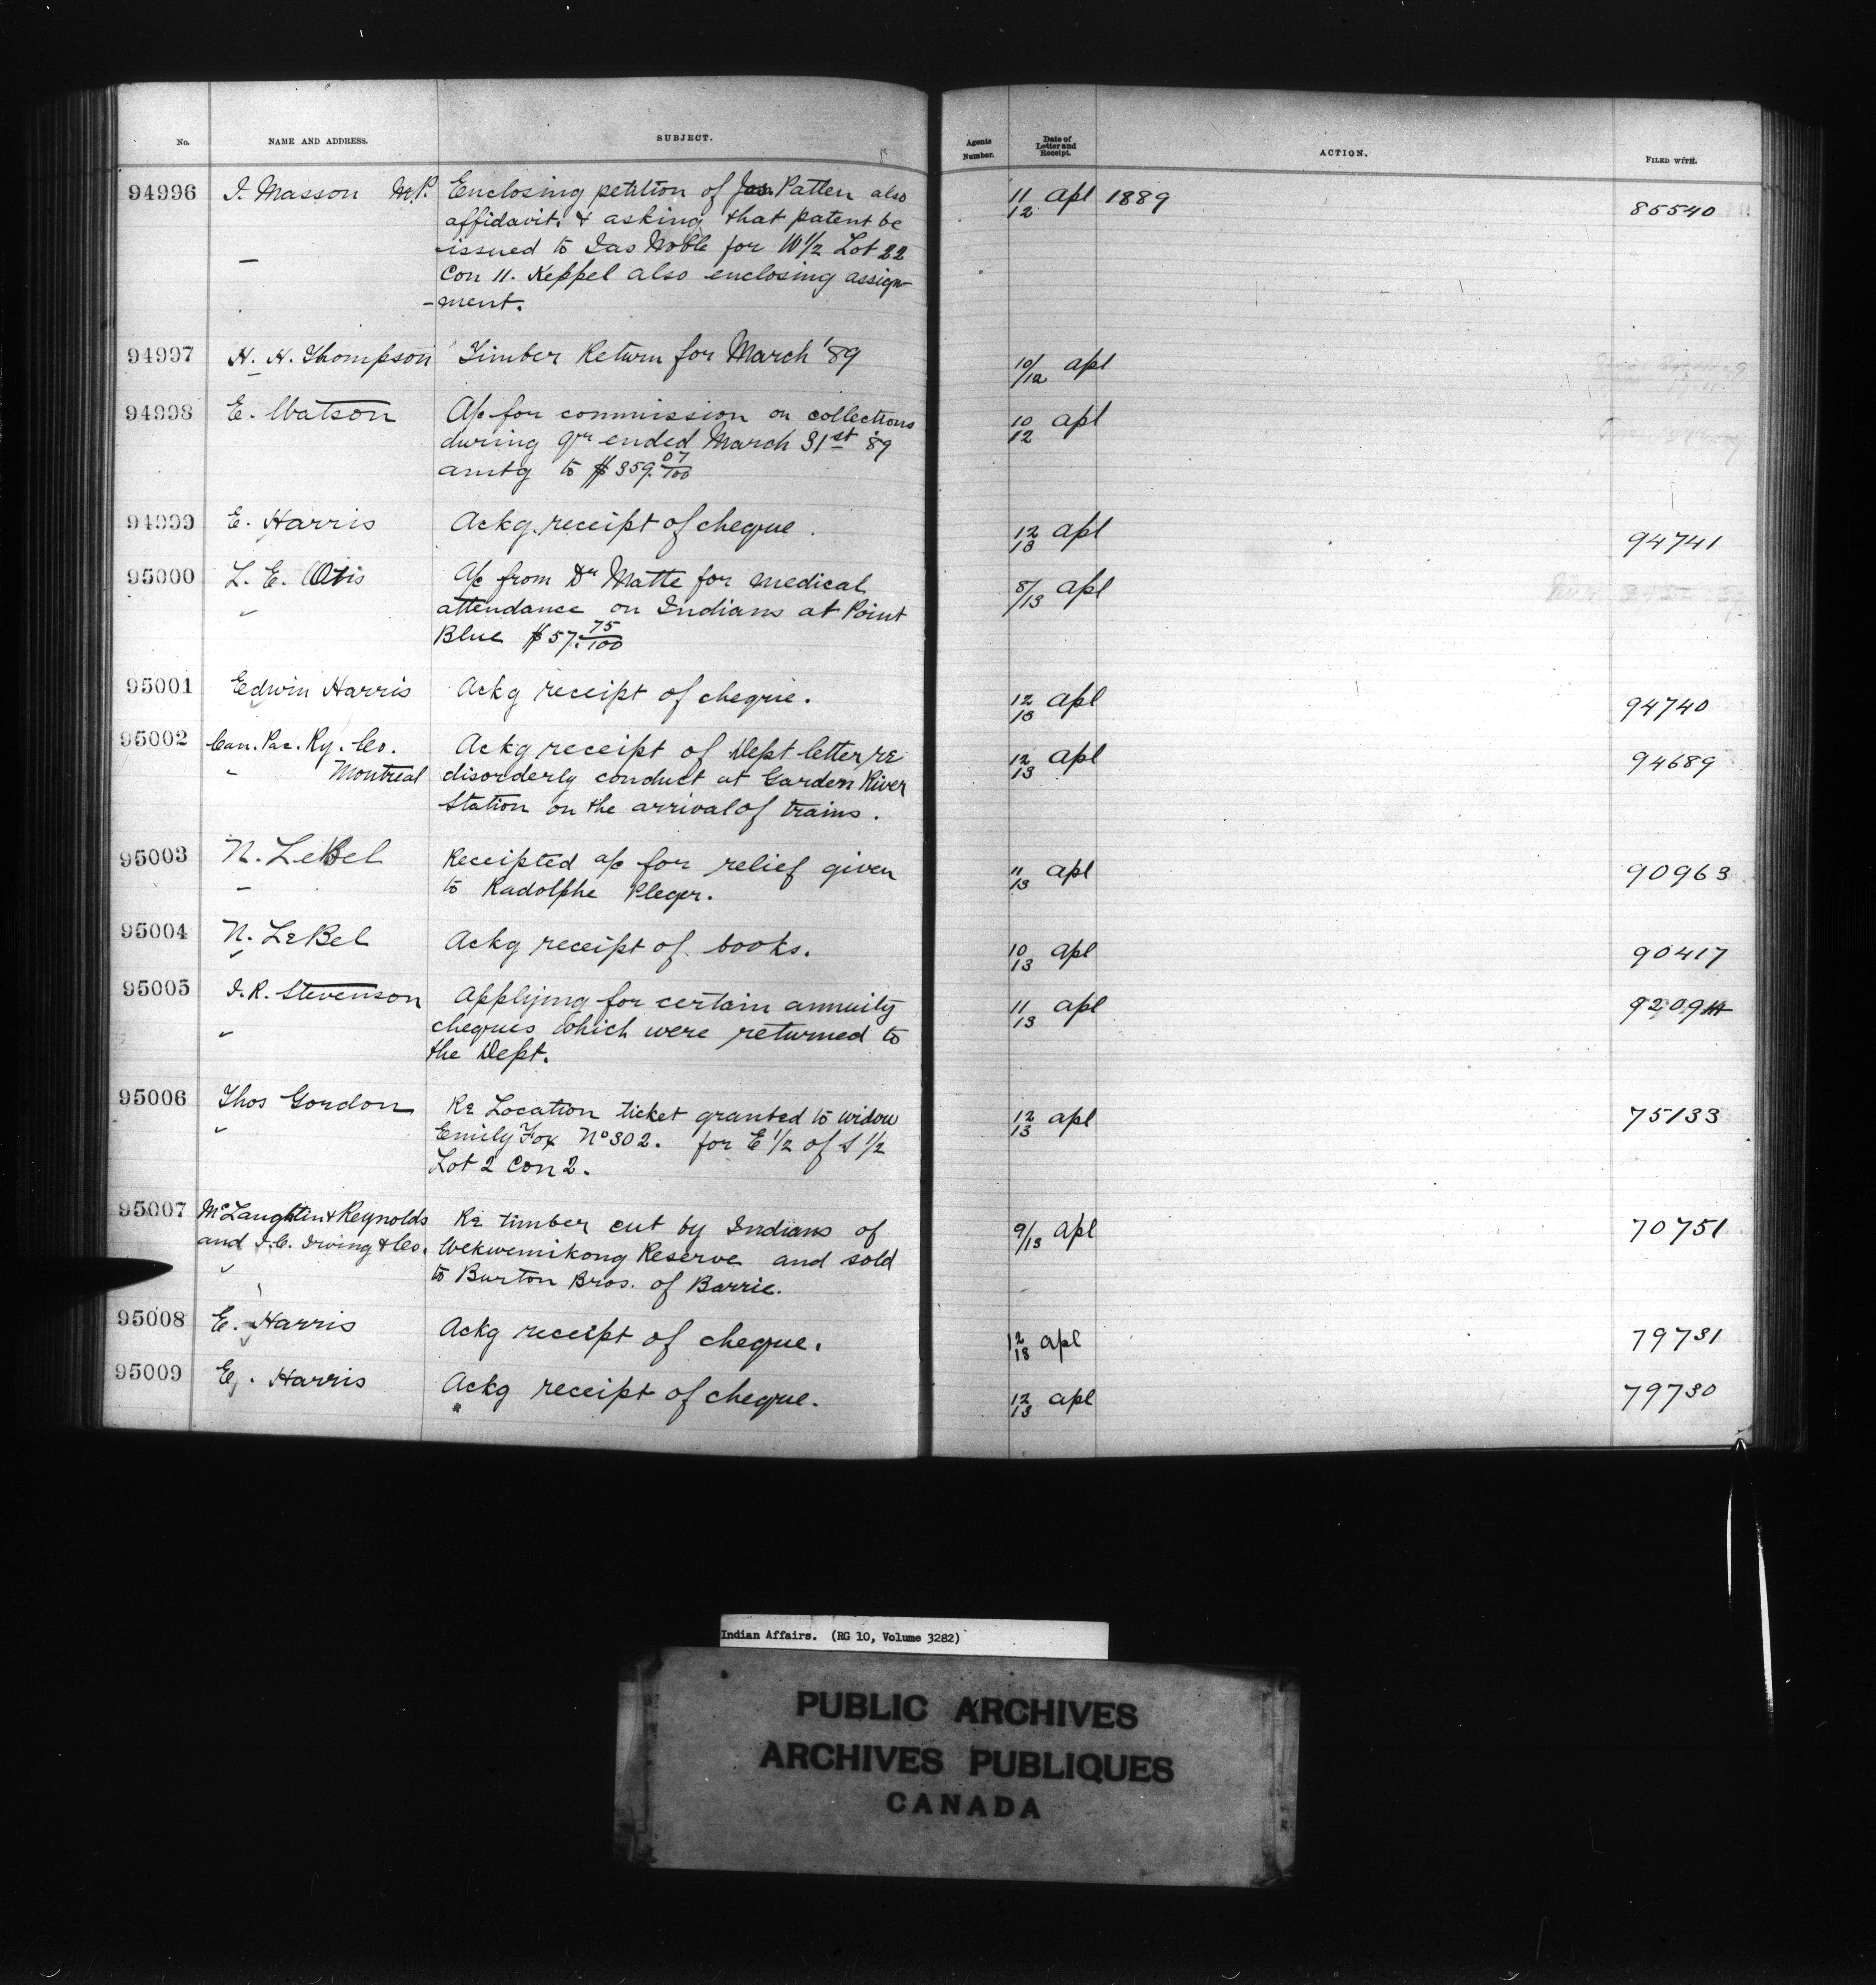 No. NAME AND ADDRESS. SUBJECT. Agents Number. Date of Letter and Receipt. ACTION. FILED WITH.
94996 J. Masson M.P. Enclosing petition of Jas. Patten also 11/12 Apl 1889 85540
affidavit. & asking that patent be
issued to Jas Noble for W 1/2 Lot 22
Con 11. Keppel also enclosing assign-
-ment.
94997 H. H. Thompson Timber Return for March '89 10/12 Apl
94998 E. Watson A/c for commission on collections 10/12 Apl
during qr ended March 31st '89
amtg to $359.07/100
94999 E. Harris Ackg. receipt of cheque. 12/13 Apl 94741
95000 L. E. Otis A/c from Dr Matte for medical 8/13 Apl
attendance on Indians at Point
Blue $57.75/100
95001 Edwin Harris Ackg receipt of cheque. 12/13 Apl 94740
95002 Can. Pac. Ry. Co. Ackg receipt of Dept letter re 12/13 Apl 94689
" Montreal disorderly conduct at Garden River
Station on the arrival of trains.
95003 N. LeBel Receipted a/c for relief given 11/13 Apl 90963
to Radolphe Pleger.
95004 N. LeBel Ackg receipt of books. 10/13 Apl 90417
95005 J. R. Stevenson Applying for certain annuity 11/13 Apl 92094
cheques which were returned to
the Dept.
95006 Thos Gordon Re Location ticket granted to widow 12/13 Apl 75133
Emily Fox No 302. for E 1/2 of S 1/2
Lot 2 Con 2.
95007 McLaughlin & Reynolds Re timber cut by Indians of 9/13 Apl 70751
and J. C. Irving & Co. Wekwemikong Reserve and sold
to Burton Bros. of Barrie.
95008 E. Harris Ackg receipt of cheque. 12/13 Apl 79731
95009 E. Harris Ackg receipt of cheque. 12/13 Apl 79730
Indian Affairs. (RG 10, Volume 3282)
PUBLIC ARCHIVES
ARCHIVES PUBLIQUES
CANADA